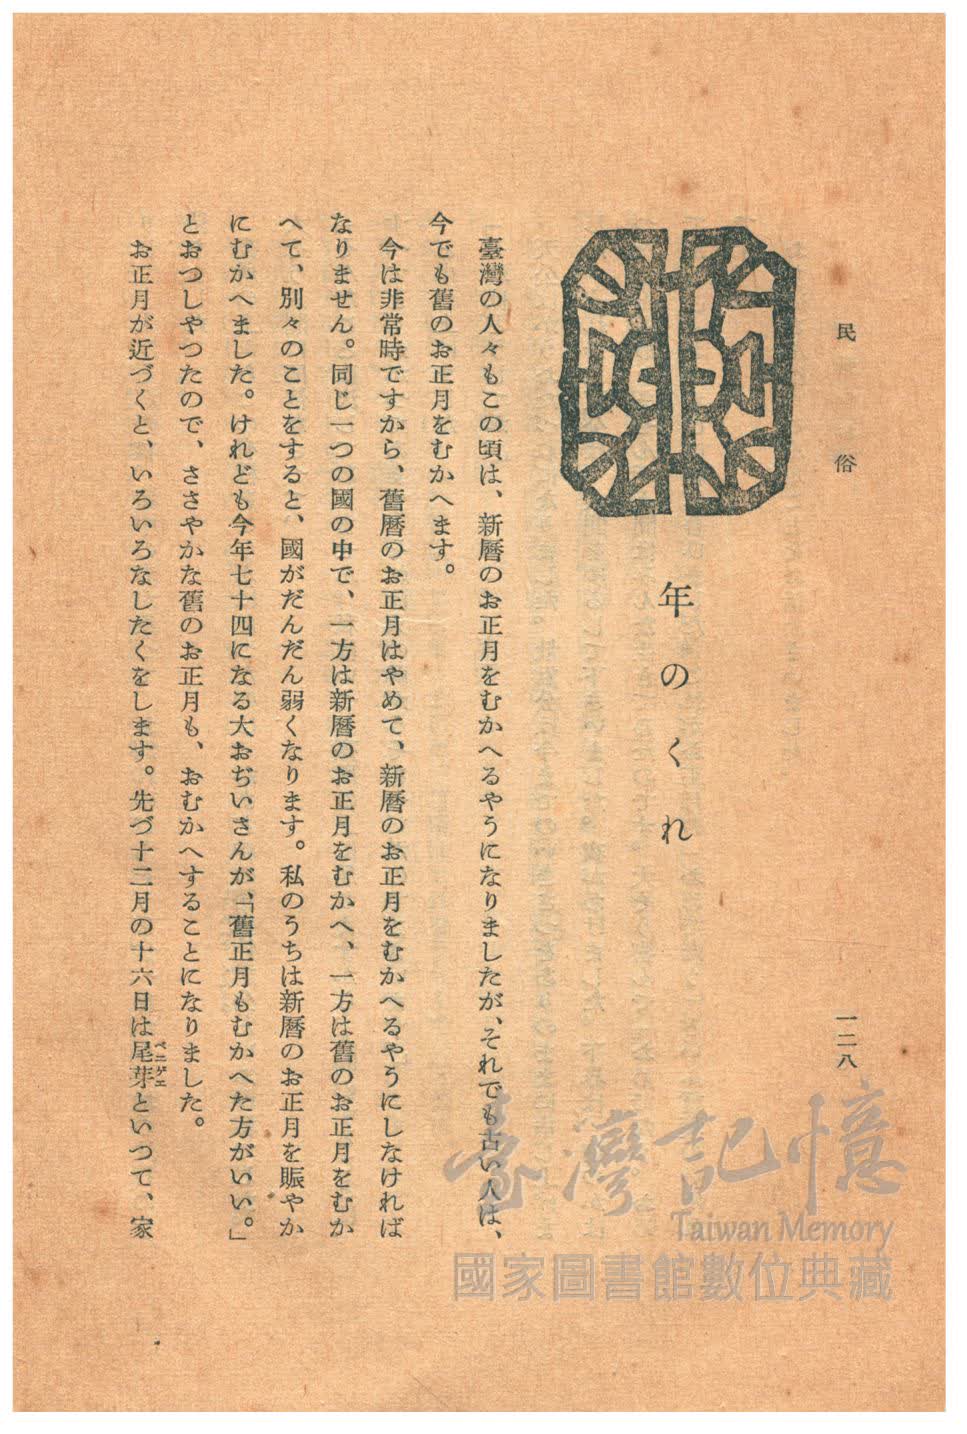 民俗
一二八
年のくれ
臺灣の人々もこの頃は、新曆のお正月をむかへるやうになりましたが、それでも古い人は、
今でも舊のお正月をむかへます。
今は非常時ですから、舊曆のお正月はやめて、新曆のお正月をむかへるやうにしなければ
なりません。同じ一つの國の中で、一方は新曆のお正月をむかへ、一方は舊のお正月をむか
へて、別々のことをすると、國がだんだん弱くなります。私のうちは新曆のお正月を賑やか
にむかへました。けれども今年七十四になる大おぢいさんが、「舊正月もむかへた方がいい。」
とおつしやつたので、ささやかな舊のお正月も、おむかへすることになりました。
お正月が近づくと、いろいろなしたくをします。先づ十二月の十六日は尾芽といつて、家
ベニゲエ
臺灣記憶
Taiwan Memory
國家圖書館數位典藏